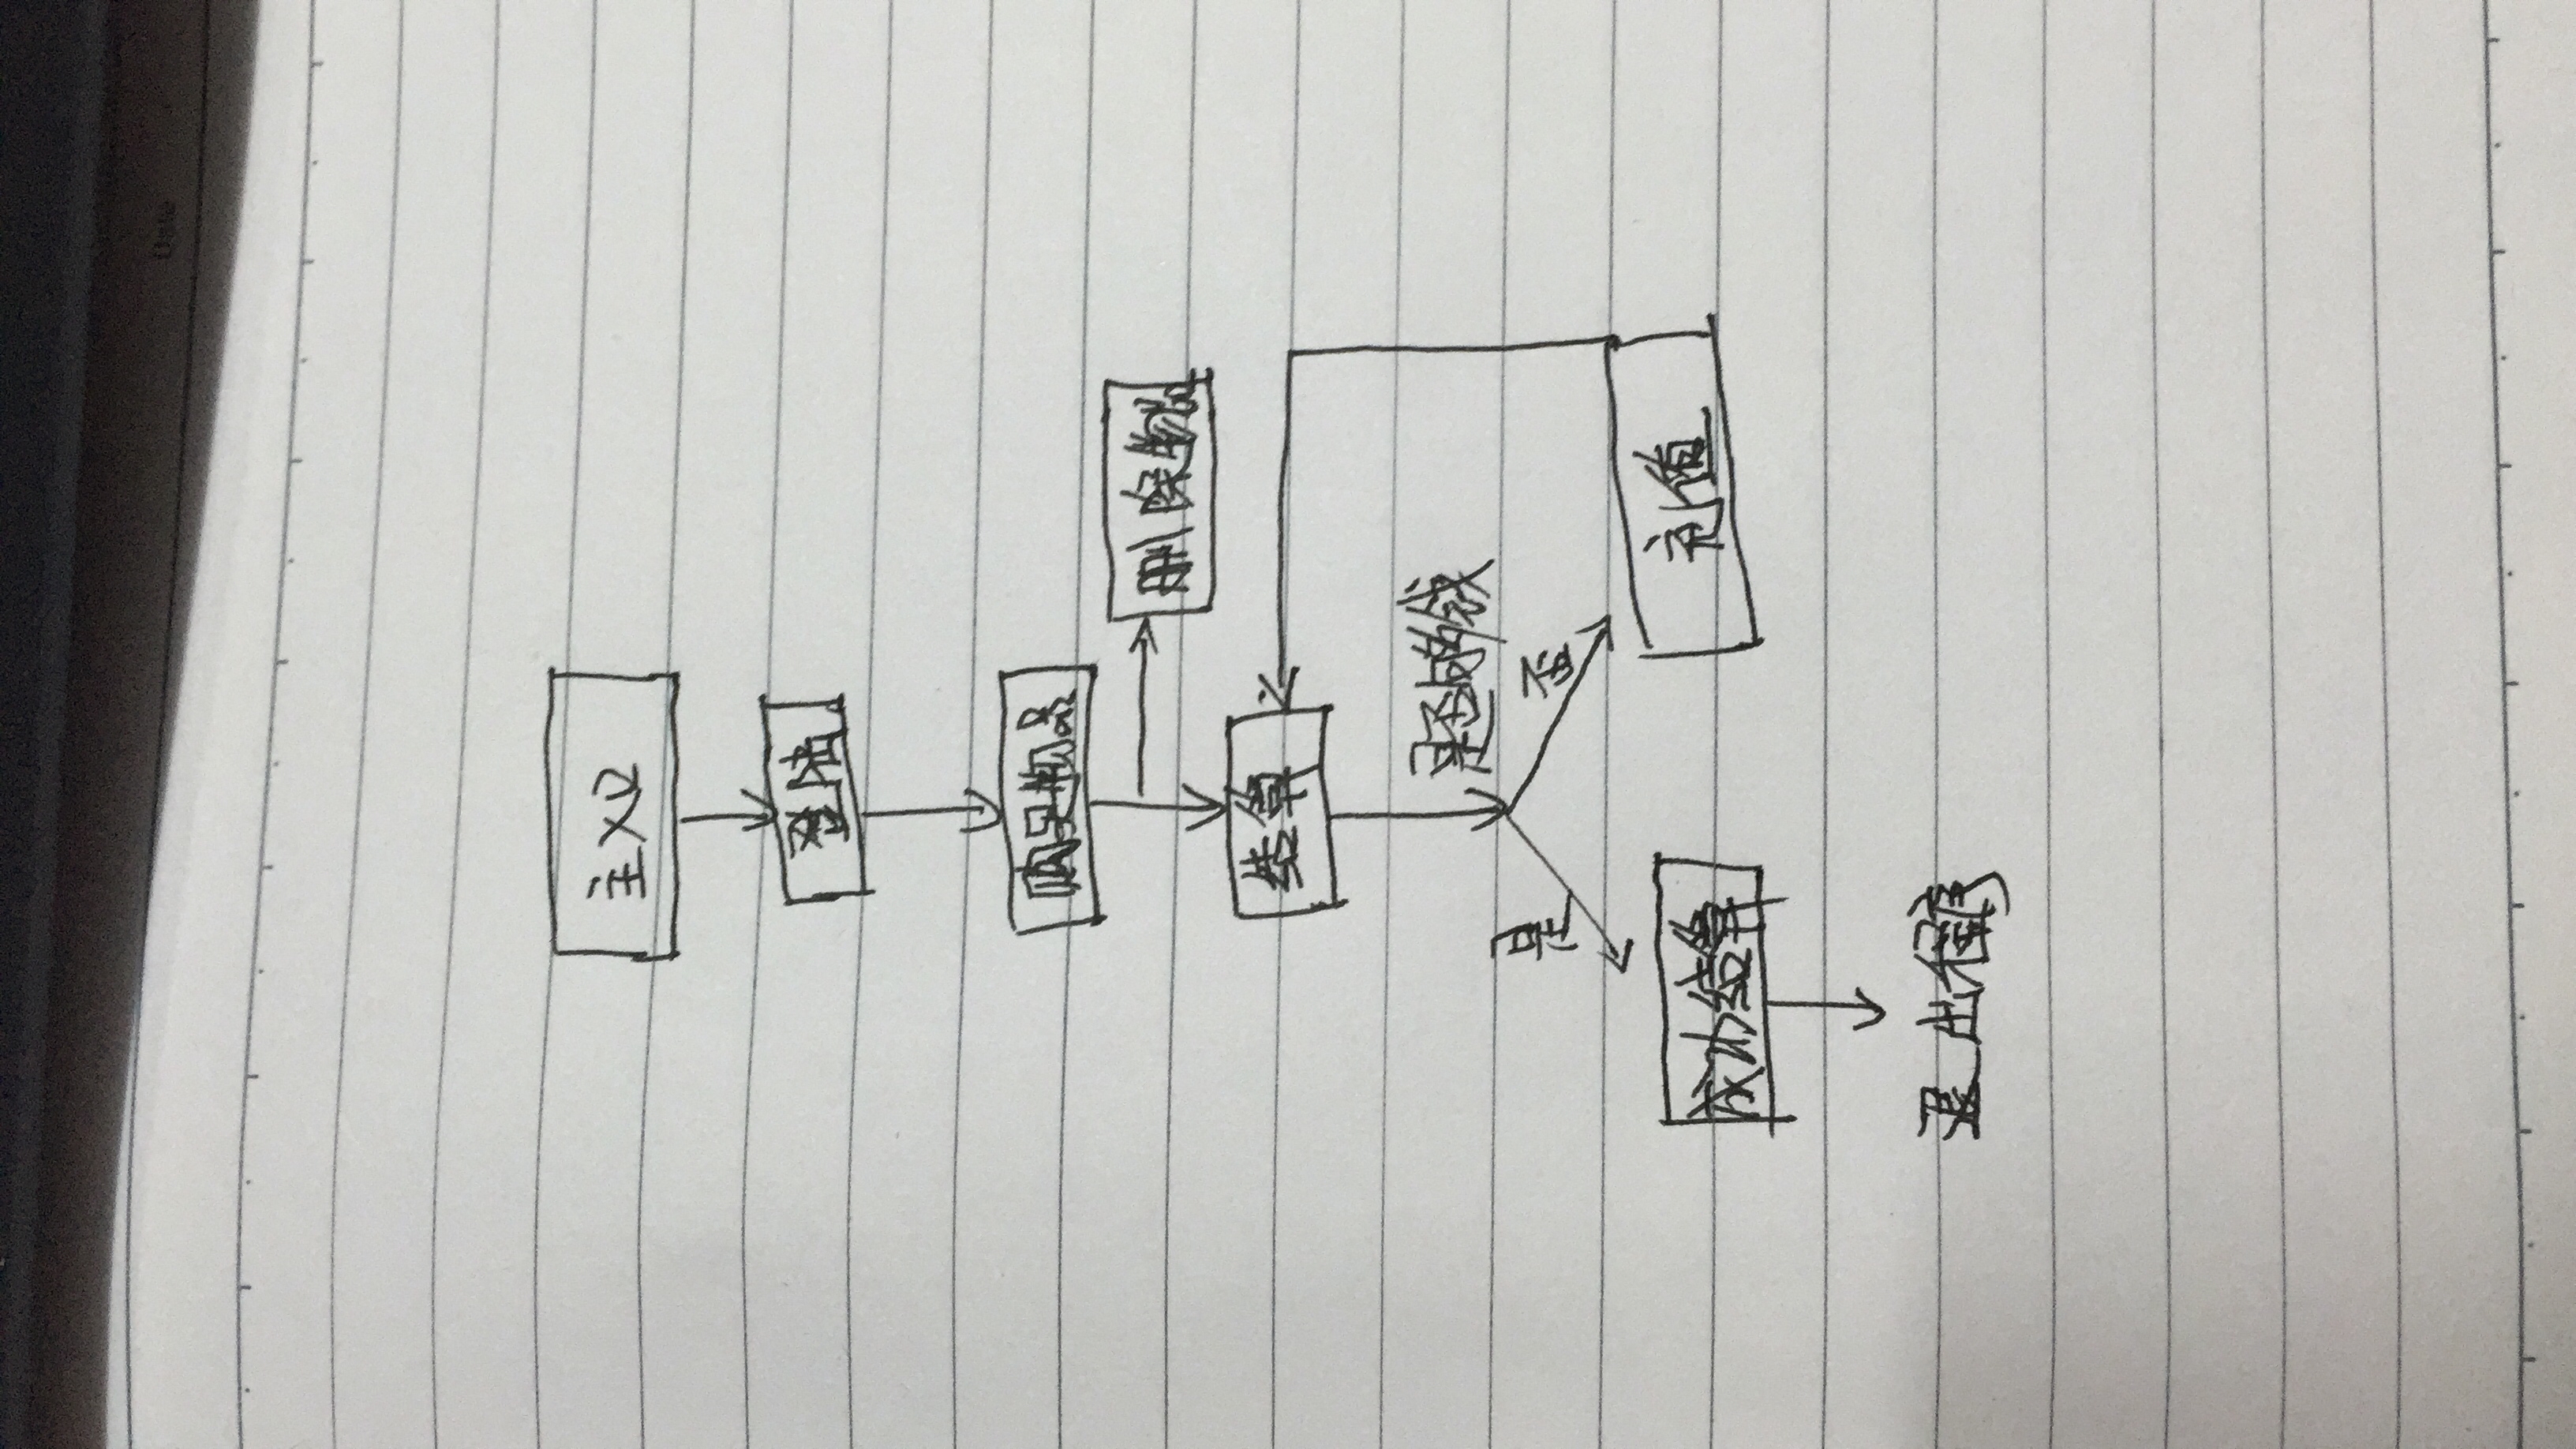 Date
主入口
登陆
购买物品
删除物品
结算
是否够钱
是
否
成功结算
充值
退出程序